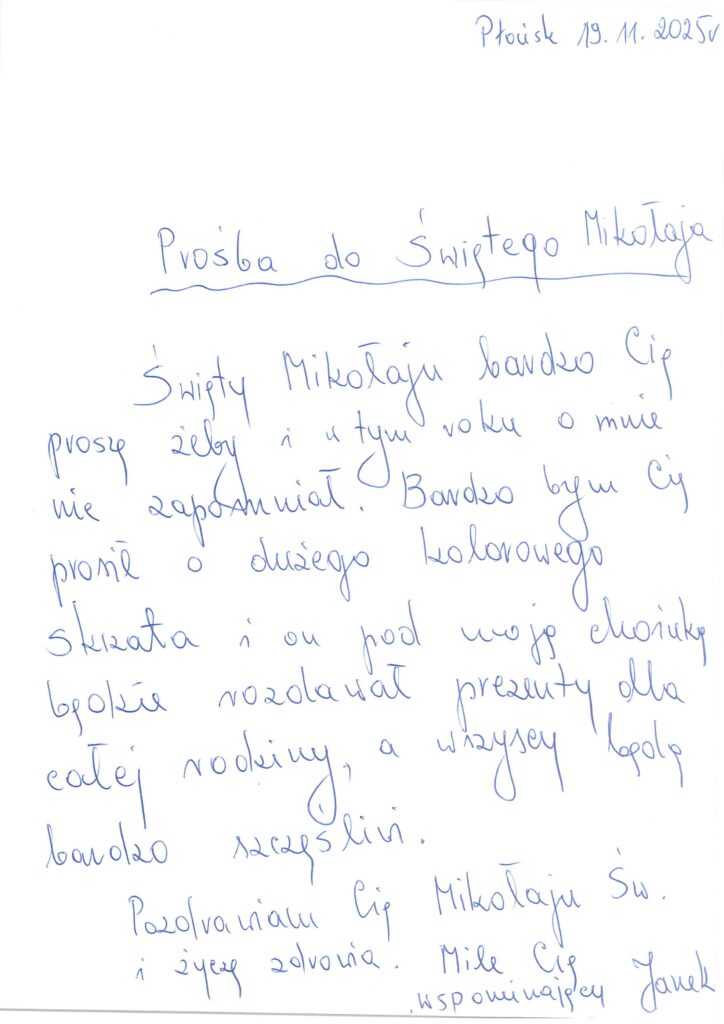 Płońsk 19. 11. 2025r
Prośba do Świętego Mikołaja
Święty Mikołaju bardzo Cię
proszę żeby i w tym roku o mnie
nie zapomniał. Bardzo bym Cię
prosił o dużego kolorowego
skrzata i on pod moją choinką
będzie rozdawał prezenty dla
całej rodziny, a wszyscy będą
bardzo szczęśliwi.
Pozdrawiam Cię Mikołaju Św.
i życzę zdrowia. Mile Cię
wspominający Janek